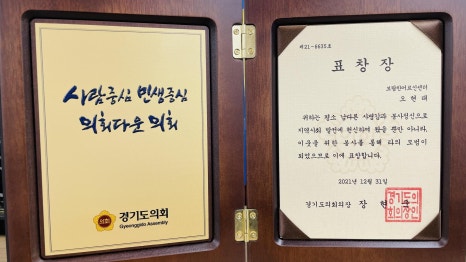 사람중심 민생중심
의회다운 의회
의회
경기도의회
Gyeonggido Assembly
제21-6635호
표창장
오현태
귀하는 평소 남다른 사명감과 봉사정신으로
지역사회 발전에 헌신하여 왔을 뿐만 아니라,
이웃을 위한 봉사를 통해 타의 모범이
되었으므로 이에 표창합니다.
2021년 12월 31일
경기도의회의장 장현국
경기도의
회의장인